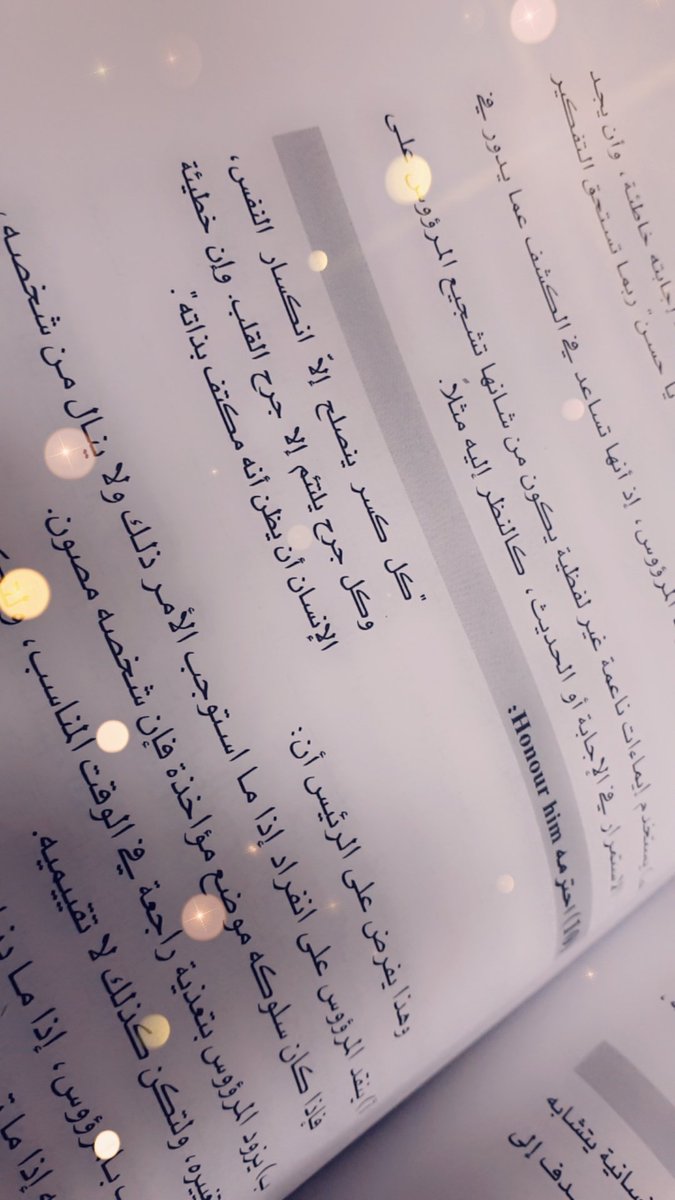 إجابته خاطئة، وأن يجد
يا حسن" ربما تستحق التفكير
المرؤوس، إذ أنها تساعد في الكشف عما يدور في
يستخدم إيماءات ناعمة غير لفظية يكون من شأنها تشجيع المرؤوس على
الاستمرار في الإجابة أو الحديث، كالنظر إليه مثلاً.
(10) احترمه Honour him:
"كل كسر ينصلح إلاّ انكسار النفس،
وكل جرح يلتئم إلا جرح القلب. وإن خطيئة
الإنسان أن يظن أنه مكتف بذاته".
وهذا يفرض على الرئيس أن:
أ) ينقد المرؤوس على انفراد إذا ما استوجب الأمر ذلك ولا ينال من شخصه،
فإذا كان سلوكه موضع مؤاخذة فإن شخصه مصون.
ب) يزود المرؤوس بتغذية راجعة في الوقت المناسب،
ولتكن كذلك لا تقييميه.
إذا ما
إذا ما
نسانية يتشابه
دف إلى